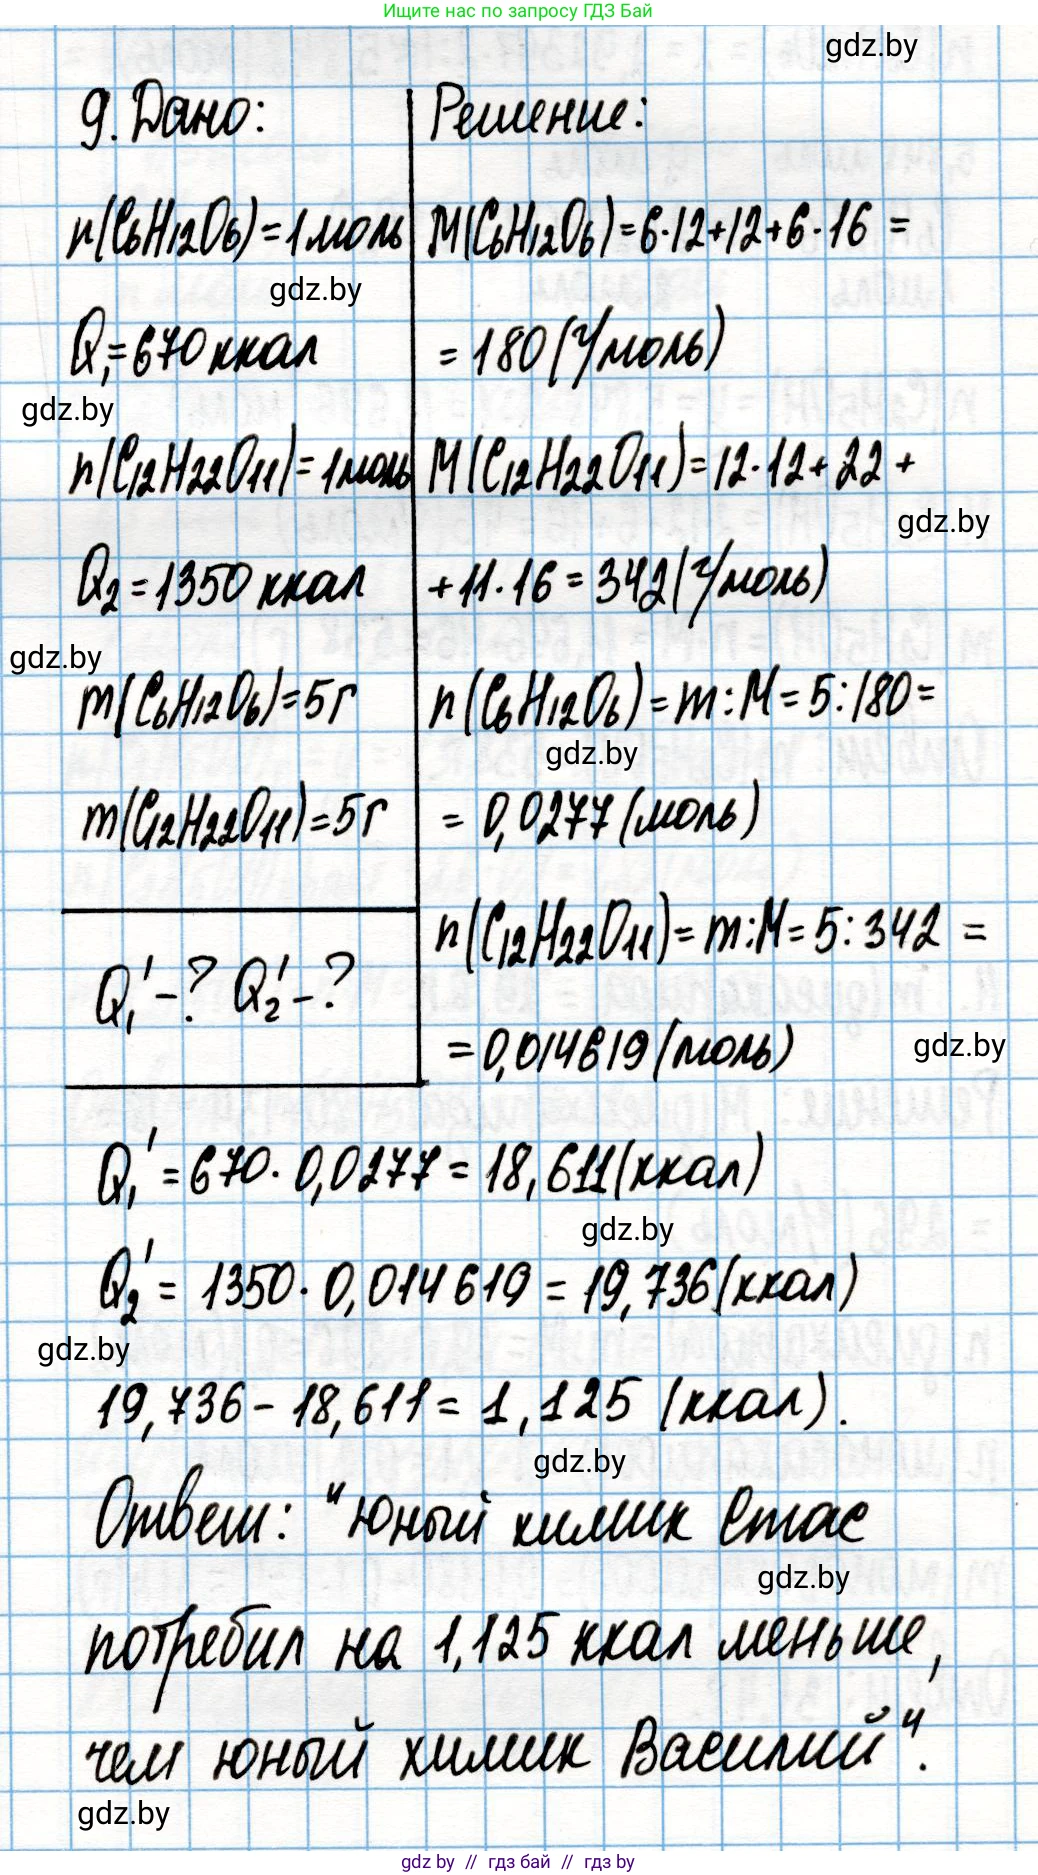 Ищите нас по запросу ГДЗ Бай
gdz.by
9. Дано:
n(C6H12O6)=1моль
gdz.by
Q1=670 ккал
gdz.by
n(C12H22O11)=1моль
Q2=1350 ккал
gdz.by
m(C6H12O6)=5г
m(C12H22O11)=5г
Q1'-? Q2'-?
Решение:
M(C6H12O6)=6·12+12+6·16=
=180(г/моль)
M(C12H22O11)=12·12+22+
gdz.by
+11·16=342(г/моль)
n(C6H12O6)=m:M=5:180=
gdz.by
=0,0277(моль)
n(C12H22O11)=m:M=5:342=
=0,014619(моль)
gdz.by
Q1'=670·0,0277=18,611(ккал)
gdz.by
Q2'=1350·0,014619=19,736(ккал)
gdz.by
19,736-18,611=1,125 (ккал).
gdz.by
Ответ: "Юный химик Стас
gdz.by
потребил на 1,125 ккал меньше,
чем юный химик Василий".
gdz.by
gdz by // гдз бай // gdz by